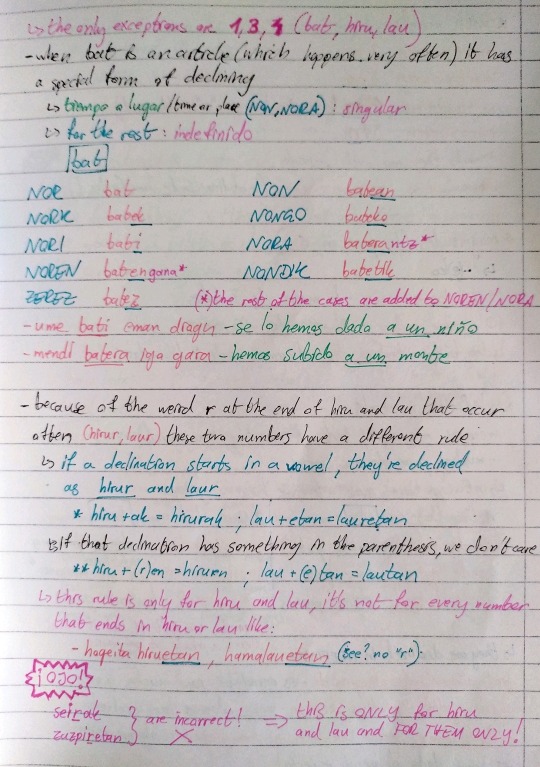 ↳ the only exceptions are 1, 3, 4 (bat, hiru, lau)
- when bat is an article (which happens very often) it has
a special form of declining
↳ tiempo o lugar/time or place (NON, NORA): singular
↳ for the rest: indefinido
bat
NOR bat NON batean
NORK batek NONGO bateko
NORI bati NORA baterantz*
NOREN batengana* NONDIK batetik
ZEREZ batez (*) the rest of the cases are added to NOREN/NORA
- ume bati eman diogu - se lo hemos dado a un niño
- mendi batera igo gara - hemos subido a un monte
- because of the weird r at the end of hiru and lau that occur
often (hirur, laur) these two numbers have a different rule
↳ if a declination starts in a vowel, they're declined
as hirur and laur
* hiru + ak = hirurak ; lau + etan = lauretan
↳ If that declination has something in the parenthesis, we don't care
** hiru + (r)en = hiruren ; lau + (e)tan = lautan
↳ this rule is only for hiru and lau, it's not for every number
that ends in hiru or lau like:
- hogeita hiruetan, hamalauetan (see? no "r")
¡OJO!
seirak
zuzpiretan } are incorrect! X ⇒ this is ONLY for hiru
and lau and FOR THEM ONLY!